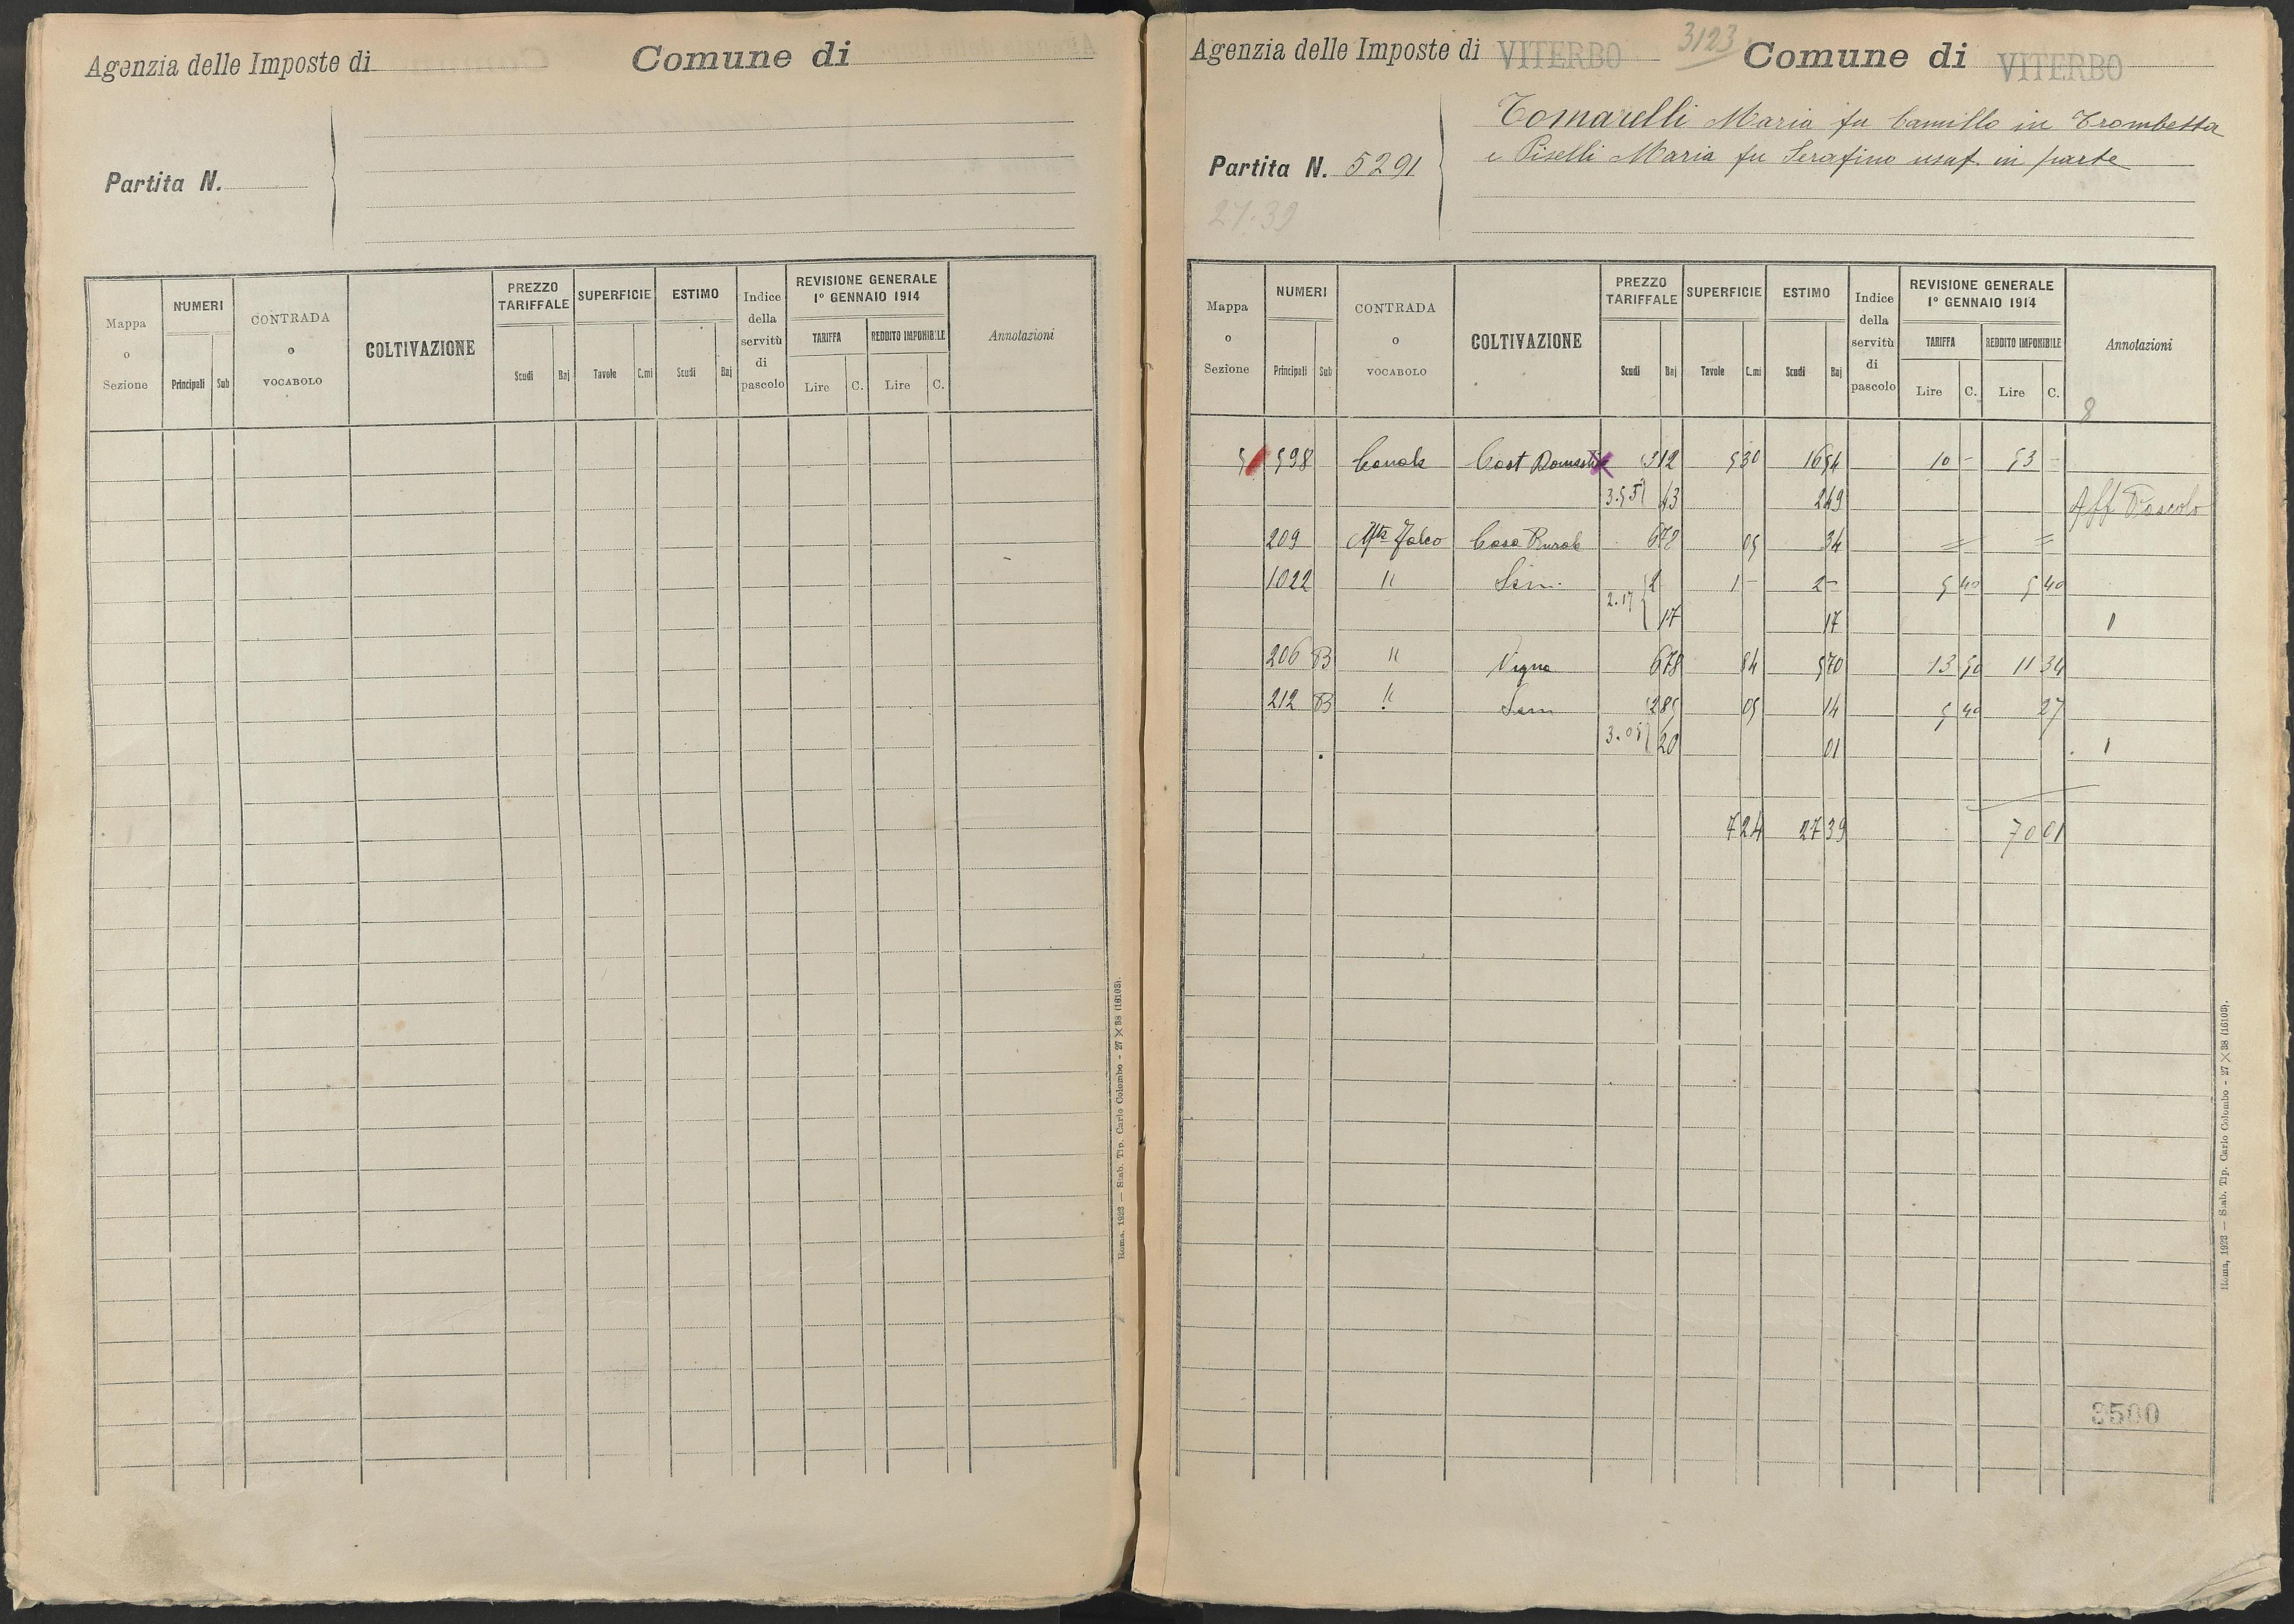 Agenzia delle Imposte di
Comune di
Partita N.
Mappa o Sezione
NUMERI
Principali
Sub
CONTRADA o VOCABOLO
COLTIVAZIONE
PREZZO TARIFFALE
Scudi
Baj
SUPERFICIE
Tavole
C.mi
ESTIMO
Scudi
Baj
Indice della servitù di pascolo
REVISIONE GENERALE
1° GENNAIO 1914
TARIFFA
REDDITO IMPONIBILE
Lire
C.
Lire
C.
Annotazioni
Roma, 1923 — Stab. Tip. Carlo Colombo - 27 × 38 (16103).
Agenzia delle Imposte di VITERBO
3123
Comune di VITERBO
Partita N. 5291
27.39
Tomarelli Maria fu Camillo in Trombetta
e Piselli Maria fu Serafino usuf. in parte
Mappa o Sezione
NUMERI
Principali
Sub
CONTRADA o VOCABOLO
COLTIVAZIONE
PREZZO TARIFFALE
Scudi
Baj
SUPERFICIE
Tavole
C.mi
ESTIMO
Scudi
Baj
Indice della servitù di pascolo
REVISIONE GENERALE
1° GENNAIO 1914
TARIFFA
REDDITO IMPONIBILE
Lire
C.
Lire
C.
Annotazioni
8
598 Cast Domestico 3 12 5 30 16 54 10 - 53 -
3.55 43 2 49 Aff Pascolo
209 Casa Rurale 6 78 05 34 = =
1022 " Sem. 2 1 - 2 - 5 40 5 40
2.17 17 17 1
206 B " Vigna 6 78 84 5 70 13 50 11 34
212 B " Sem 2 85 05 14 5 40 27
3.05 20 01 1
7 24 27 39 70 01
3500
Roma, 1923 — Stab. Tip. Carlo Colombo - 27 × 38 (16103).